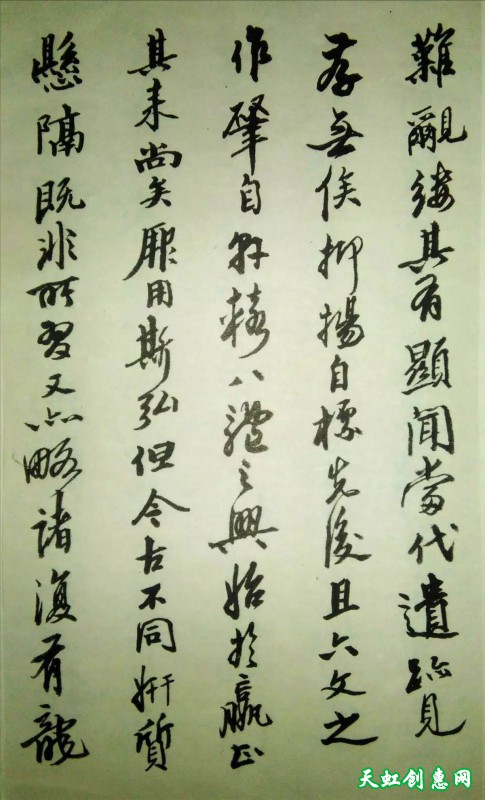 難覼縷其有顯聞當代遺跡見
存無俟抑揚自標先後且六文之
作肇自軒轅八體之興始於嬴正
其來尚矣厥用斯弘但今古不同妍質
懸隔既非所習又亦略諸復有龍
天虹创惠网